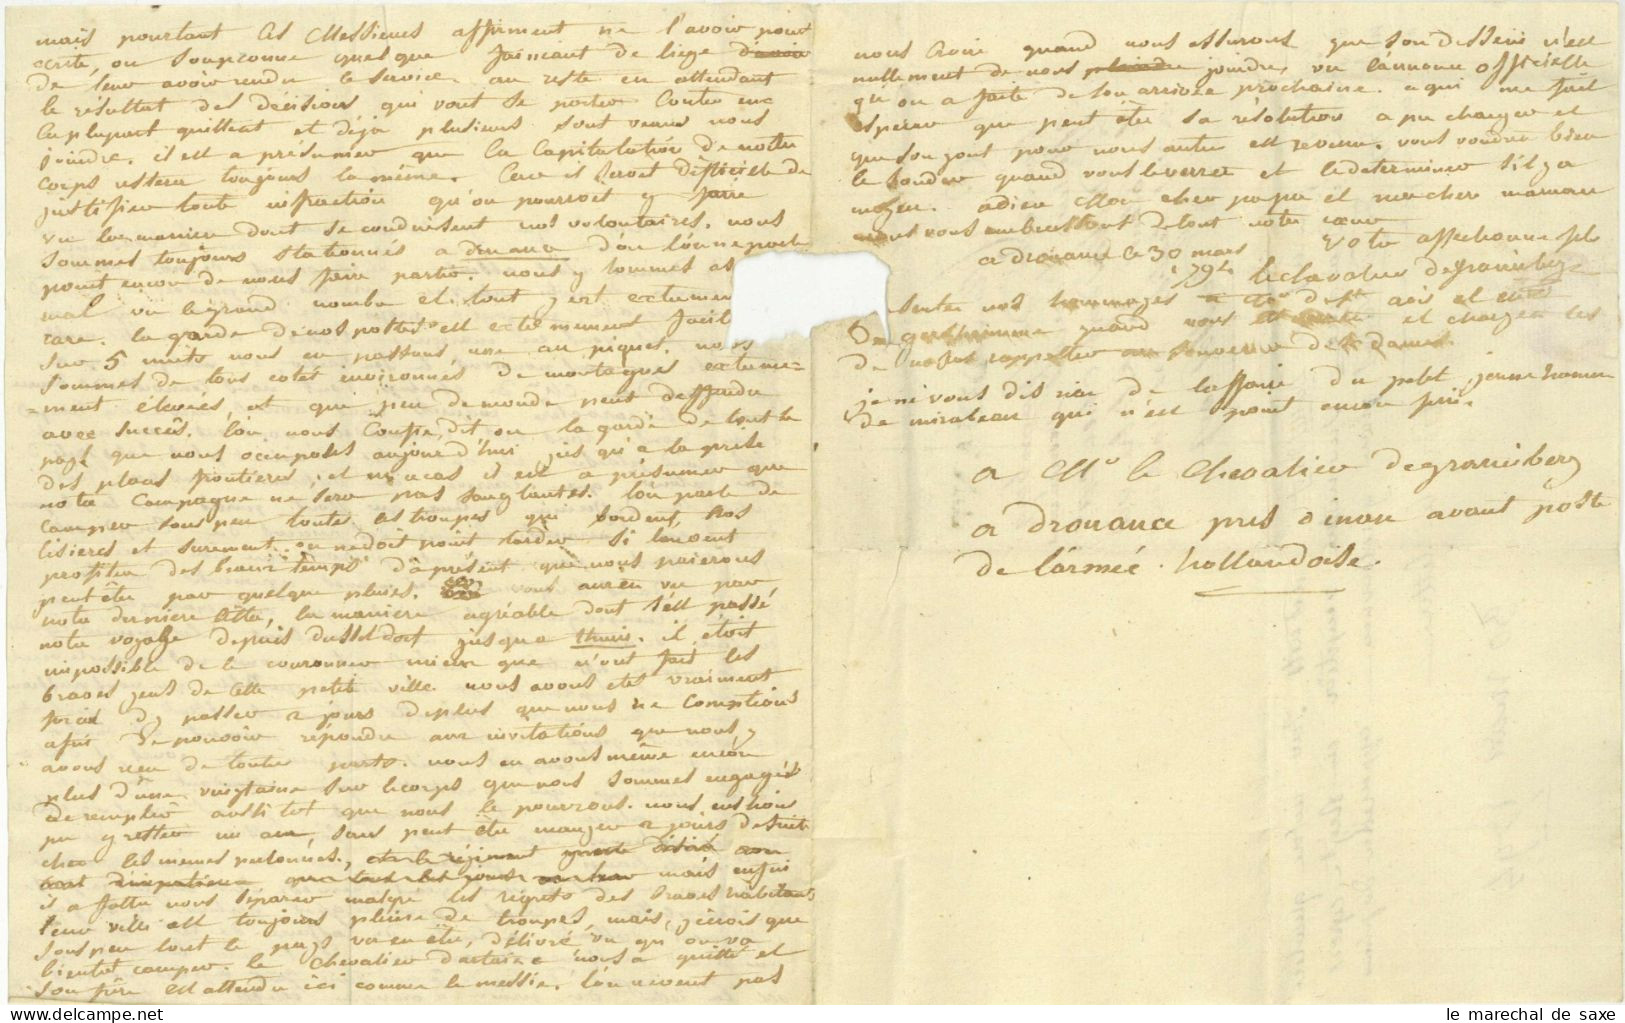 mais pourtant ces Messieurs affirment ne l'avoir point
écrite, on soupçonne quelque faineant de liege
de leur avoir rendu ce service. au reste en attendant
le résultat des décisions qui vont se porter Contre eux
la plupart quittent et déja plusieurs sont venus nous
joindre. il est a présumer que la Capitulation de notre
Corps restera toujours la même. Car il seroit difficile de
justifier toute infraction qu'on pourroit y faire
vu la maniere dont se conduisent nos volontaires. nous
sommes toujours stationnés a drouance d'ou l'on ne parle
point encor de nous faire partir. nous y sommes as
mal vu le grand nombre et tout y est extremem
rare. la garde de nos postes est extremement facile
sur 5 nuits nous en passons une au piquet. nous
sommes de tous cotés environnés de montagnes extreme=
=ment élevées, et que peu de monde peut deffendre
avec succès. l'on nous Confie, dit on la garde de tout le
pays que nous occupons aujourd'hui jus qu'a la prise
des places frontieres, et en ce cas il est a présumer que
notre Campagne ne sera pas sanglantes. l'on parle de
camper sous peu toutes les troupes qui bordent, nos
lisieres et surement on ne doit point tarder si l'on veut
profiter des beaux temps d'àprésent que nous paierons
peut être par quelque pluies. vous aurez vu par
notre derniere lettre, la maniere agréable dont s'est passé
notre voyage depuis dusseldorf jusqu'a thuin. il étoit
impossible de le couronner mieux que n'ont fait les
braves gens de cette petite ville. nous avons etés vraiment
forcé d'y passer 2 jours deplus que nous ne Comptions
afin de pouvoir répondre aux invitations que nous y
avons reçu de toutes parts. nous en avons même encor
plus d'une vingtaine sur le corps que nous sommes engagés
de remplir aussitot que nous le pourrons. nous eussions
pu y rester un an, sans peut être manger 2 jours de suite
chez les memes personnes, mais enfin
il a fallu nous séparer malgré les regrets des braves habitants
leur ville est toujours pleine de troupes, mais, j'écrois que
sous peu tout le pays va en être, délivré vu qu'on va
bientot camper. le Chevalier d'artaize nous a quitté et
son frere est attendu ici comme le messie. l'on ne veut pas
nous croire quand nous assurons que son dessein n'est
nullement de nous joindre, vu l'annonce officielle
qu'on a faite de son arrivée prochaine. ce qui me fait
esperer que peut être sa résolution a pu changer et
que son gout pour nous autres est revenu. vous voudrez bien
le sonder quand vous le verrez et le determiner s'il y a
moyen. adieu Mon cher papa et ma chere maman
nous vous embrassons de tout notre coeur
a drouance le 30 mars Votre affectionné fils
1792. le chevalier de granisberg
nos hommages et
quand vous et charger les
de nous rappeller au souvenir de les dames.
je ne vous dis rien de l'affaire du petit jeune homme
de mirabeau qui n'est point encor fini.
a Mr le Chevalier de granisberg
a drouance près dinan avant poste
de l'armée hollandoise.
le marechal de saxe